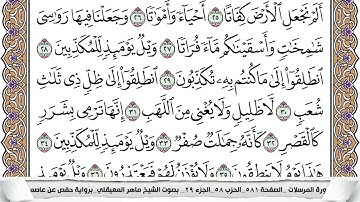 أَلَمْ نَجْعَلِ ٱلْأَرْضَ كِفَاتًا ٢٥ أَحْيَآءً وَأَمْوَٰتًا ٢٦ وَجَعَلْنَا فِيهَا رَوَٰسِىَ
شَٰمِخَٰتٍ وَأَسْقَيْنَٰكُم مَّآءً فُرَاتًا ٢٧ وَيْلٌ يَوْمَئِذٍ لِّلْمُكَذِّبِينَ ٢٨
ٱنطَلِقُوٓا۟ إِلَىٰ مَا كُنتُم بِهِۦ تُكَذِّبُونَ ٢٩ ٱنطَلِقُوٓا۟ إِلَىٰ ظِلٍّ ذِى ثَلَٰثِ
شُعَبٍ ٣٠ لَّا ظَلِيلٍ وَلَا يُغْنِى مِنَ ٱللَّهَبِ ٣١ إِنَّهَا تَرْمِى بِشَرَرٍ
كَٱلْقَصْرِ ٣٢ كَأَنَّهُۥ جِمَٰلَتٌ صُفْرٌ ٣٣ وَيْلٌ يَوْمَئِذٍ لِّلْمُكَذِّبِينَ ٣٤
هَٰذَا يَوْمُ لَا يَنطِقُونَ ٣٥ وَلَا يُؤْذَنُ لَهُمْ فَيَعْتَذِرُونَ ٣٦ وَيْلٌ يَوْمَئِذٍ
ورة المرسلات _ الصفحة ٥٨١ _ الحزب ٥٨ _ الجزء ٢٩ _ بصوت الشيخ ماهر المعيقلي _ برواية حفص عن عاصم